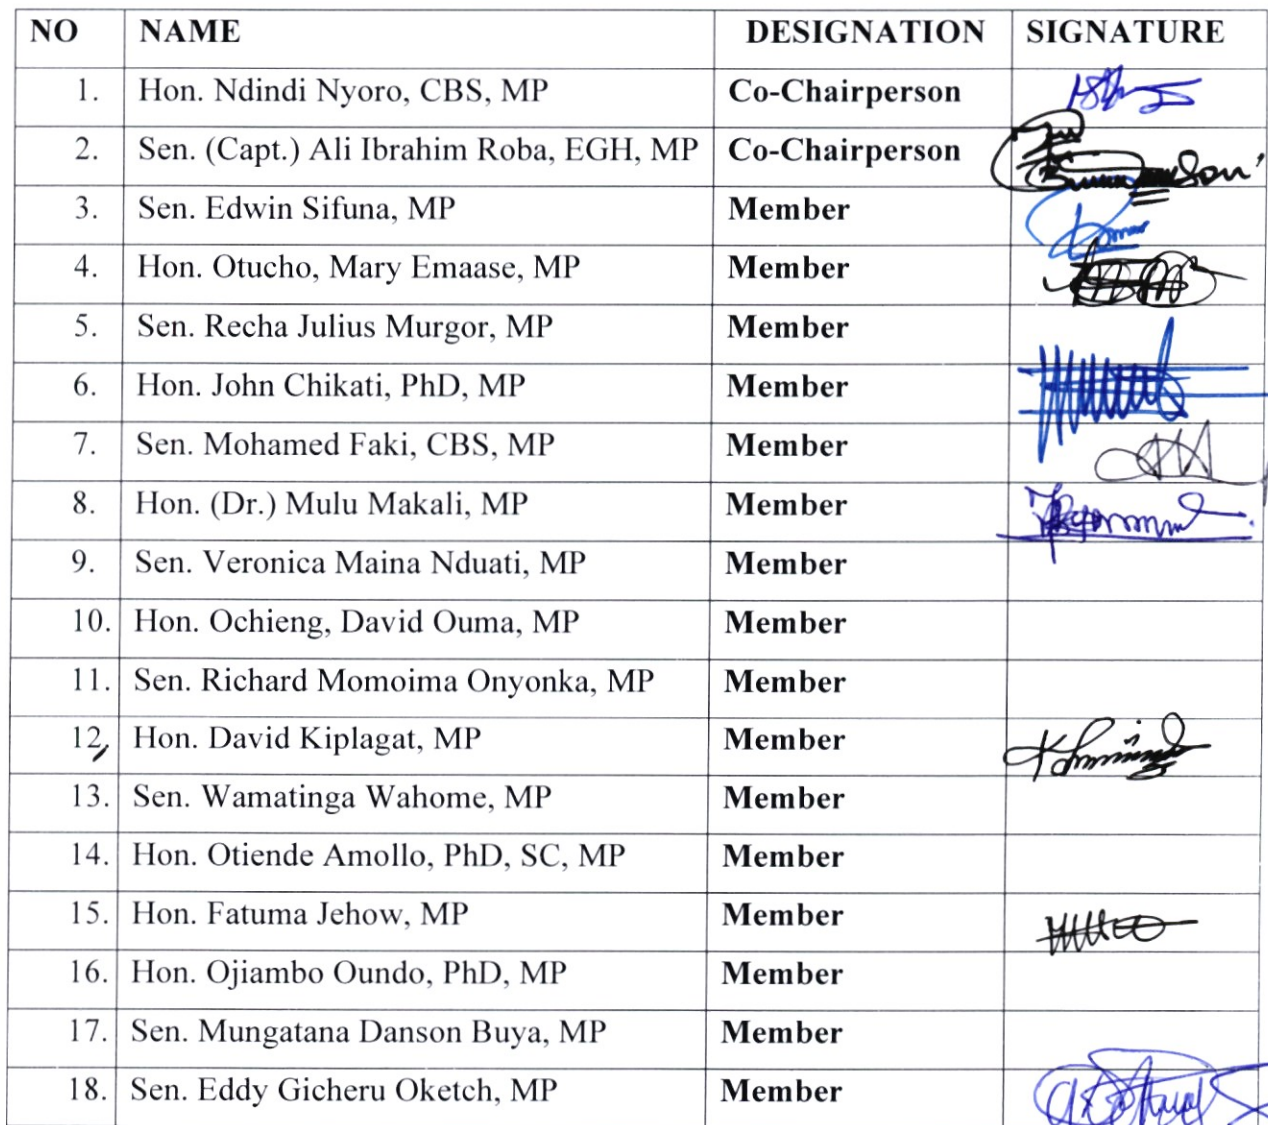 NO NAME DESIGNATION SIGNATURE
1. Hon. Ndindi Nyoro, CBS, MP Co-Chairperson
2. Sen. (Capt.) Ali Ibrahim Roba, EGH, MP Co-Chairperson
3. Sen. Edwin Sifuna, MP Member
4. Hon. Otucho, Mary Emaase, MP Member
5. Sen. Recha Julius Murgor, MP Member
6. Hon. John Chikati, PhD, MP Member
7. Sen. Mohamed Faki, CBS, MP Member
8. Hon. (Dr.) Mulu Makali, MP Member
9. Sen. Veronica Maina Nduati, MP Member
10. Hon. Ochieng, David Ouma, MP Member
11. Sen. Richard Momoima Onyonka, MP Member
12, Hon. David Kiplagat, MP Member
13. Sen. Wamatinga Wahome, MP Member
14. Hon. Otiende Amollo, PhD, SC, MP Member
15. Hon. Fatuma Jehow, MP Member
16. Hon. Ojiambo Oundo, PhD, MP Member
17. Sen. Mungatana Danson Buya, MP Member
18. Sen. Eddy Gicheru Oketch, MP Member